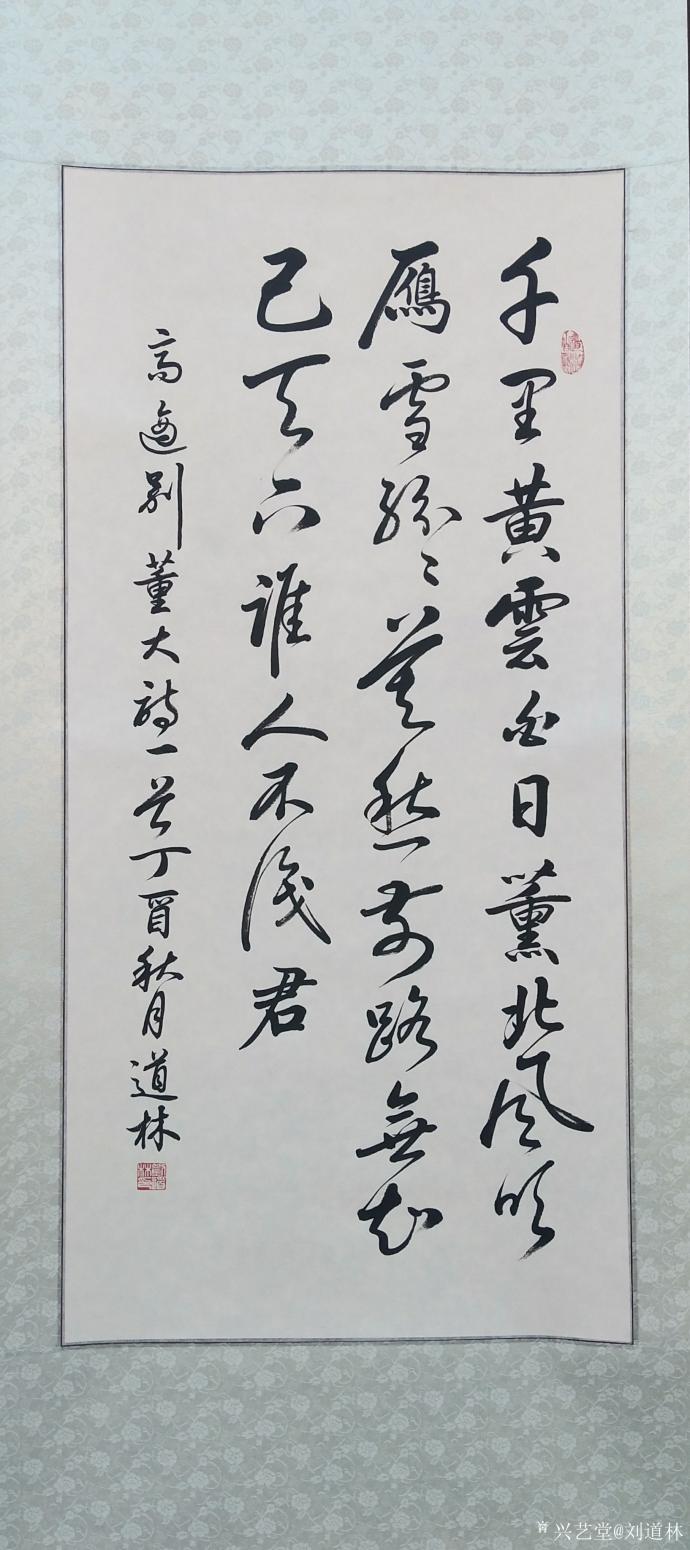 千里黄雲白日薰北風吹
鴈雪紛〻莫愁前路無知
己天下誰人不識君
高適别董大詩一首丁酉秋月道林
兴艺堂@刘道林